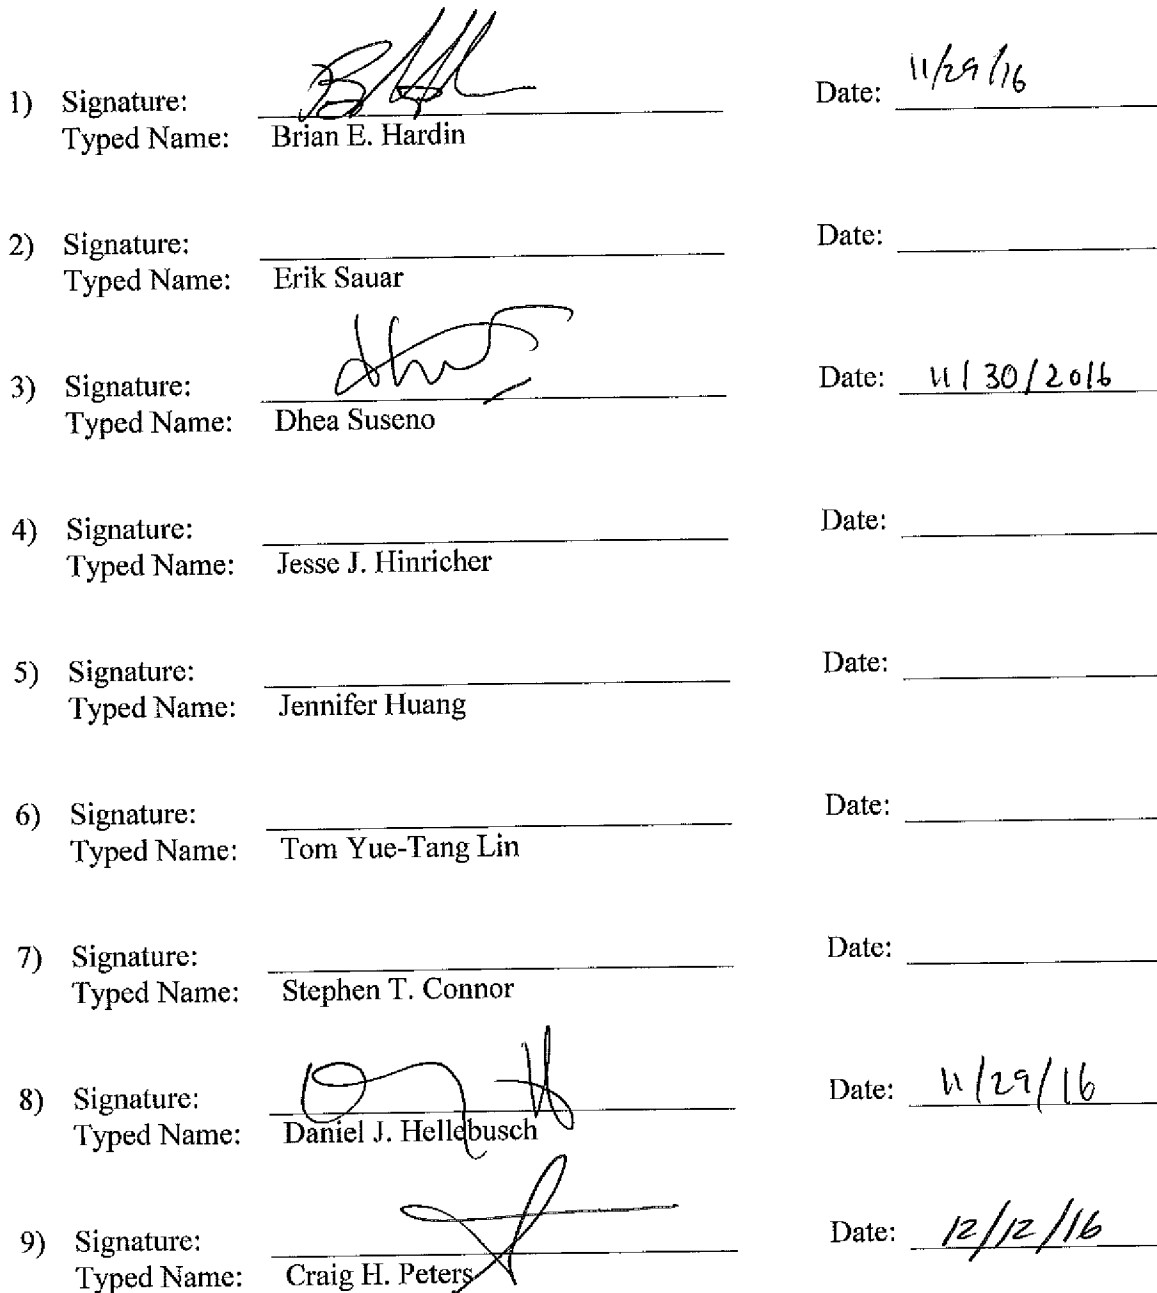 1) Signature: Date: 11/29/16
Typed Name: Brian E. Hardin
2) Signature: Date:
Typed Name: Erik Sauar
3) Signature: Date: 11/30/2016
Typed Name: Dhea Suseno
4) Signature: Date:
Typed Name: Jesse J. Hinricher
5) Signature: Date:
Typed Name: Jennifer Huang
6) Signature: Date:
Typed Name: Tom Yue-Tang Lin
7) Signature: Date:
Typed Name: Stephen T. Connor
8) Signature: Date: 11/29/16
Typed Name: Daniel J. Hellebusch
9) Signature: Date: 12/12/16
Typed Name: Craig H. Peters